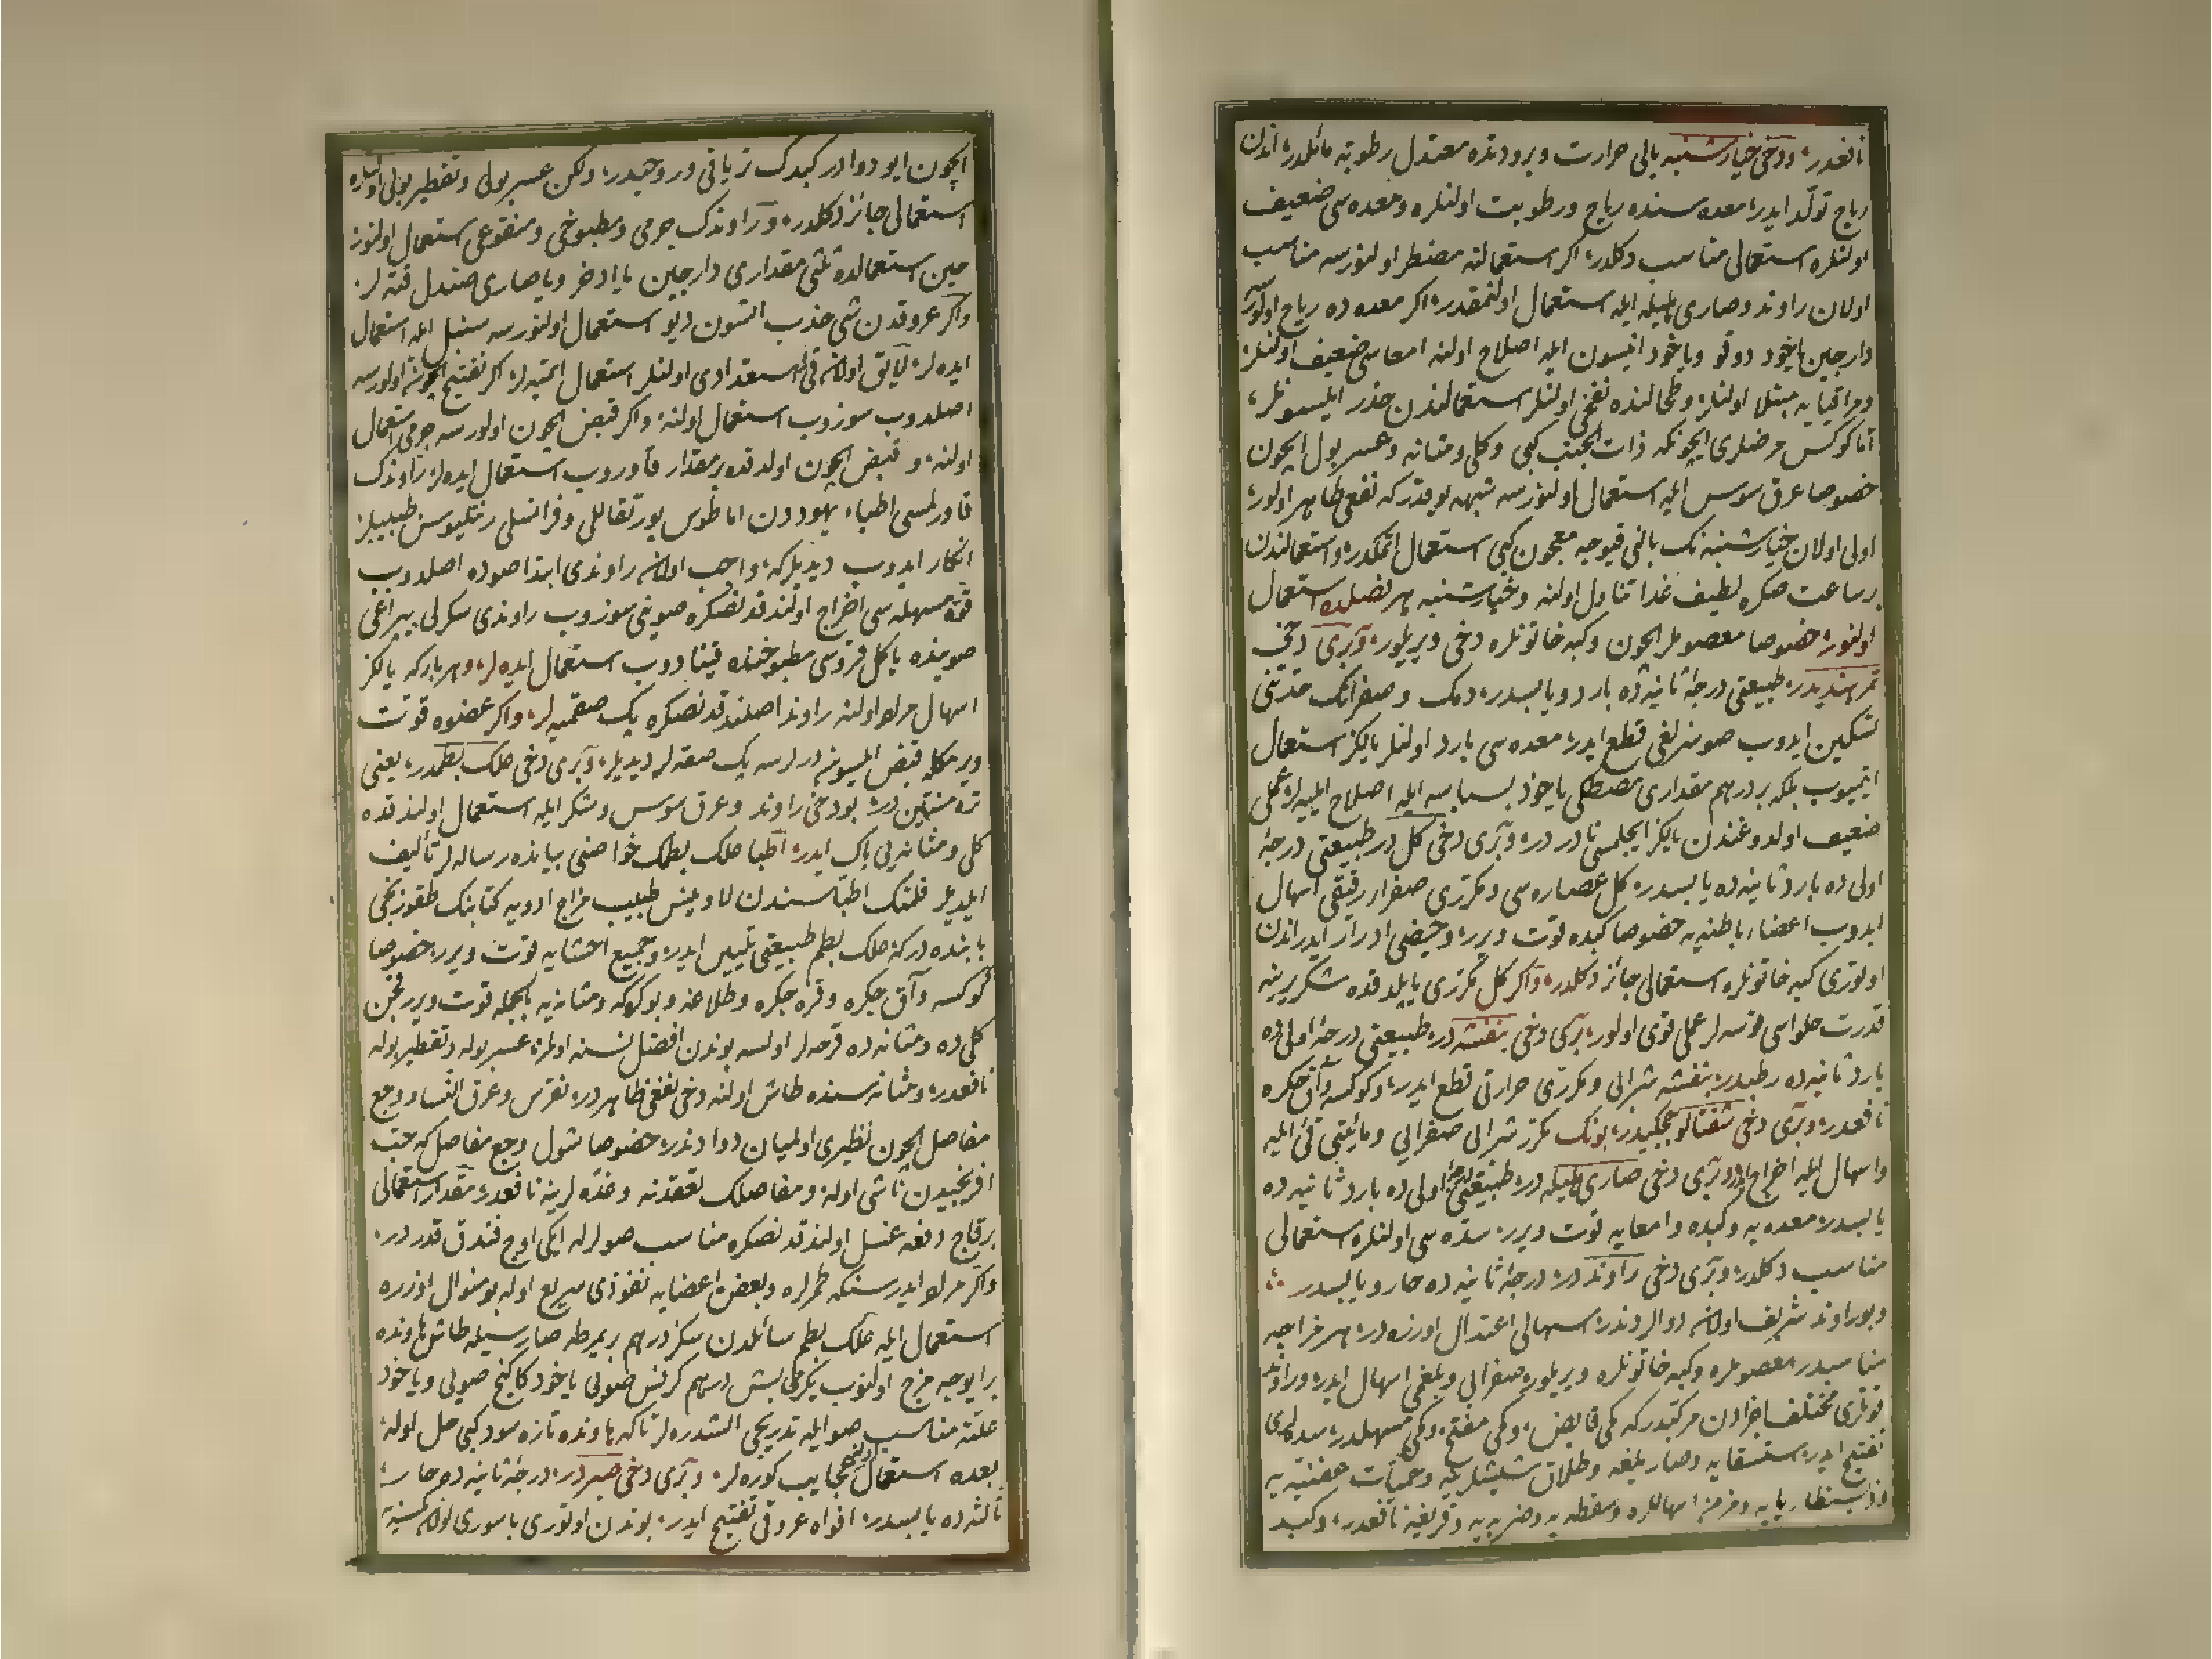 نافعدر ودخی خیارشنبه بالی حرارت وبرودتده معتدل رطوبته مائلدر اندن
ریاح تولد ایدر معده سنده ریاح ورطوبت اولنلره ومعده سی ضعیف
اولنلره استعمالی مناسب دکلدر اکر استعمالنه مضطر اولنورسه مناسب
اولان راوند وصاری هلیله ایله استعمال اولنمقدر اکر معده ده ریاح اولور
دارچین یاخود دوقو ویاخود انیسون ایله اصلاح اولنه امعاسی ضعیف اولنلر
ومراقیایه مبتلا اولنلر وطحالنده نفخی اولنلر استعمالندن حذر ایلیسونلر
اما کوکس مرضلری ایچونکه ذات الجنب کبی وکلی ومثانه وعسر بول ایچون
خصوصا عرق سوس ایله استعمال اولنورسه شبهه یوقدرکه نفعی ظاهر اولور
اولی اولان خیارشنبه نک بالنی قیوجه معجون کبی استعمال اتمکدر واستعمالندن
برساعت صکره لطیف غدا تناول اولنه وخیارشنبه هر فصلده استعمال
اولنور خصوصا معصوملر ایچون وکبه خاتونلره دخی ویریلور وبری دخی
تمر هندیدر طبیعتی درجهٔ ثانیه ده بارد ویابسدر دمک وصفرانک حدتنی
تسکین ایدوب صوسزلغی قطع ایدر معده سی بارد اولنلر یالکز استعمال
ایتمیوب بلکه بر درهم مقداری مصطکی یاخود بسباسه ایله اصلاح ایلیه لر عملی
ضعیف اولدوغندن یالکز ایچلمسی نادردر وبری دخی کل در طبیعتی درجهٔ
اولی ده بارد ثانیه ده یابسدر کل عصاره سی ومکرری صفرار رقیقی اسهال
ایدوب اعضاء باطنیه خصوصا کبده قوت ویرر وحیضی ادرار ایدر اندن
اولتوری کبه خاتونلره استعمالی جائز دکلدر واکر کل مکرری یاپیلدقده شکر یرینه
قدرت حلواسی قونسه لر عملی قوی اولور بری دخی بنفشه در طبیعتی درجهٔ اولی ده
بارد ثانیه ده رطبدر بنفشه شرابی ومکرری حرارتی قطع ایدر وکوکسه وآق جکره
نافعدر وبری دخی شفتالو چچکیدر بونک مکرر شرابی صفرایی ومائیتی قی ایله
واسهال ایله اخراج ایدر وبری دخی صاری هلیله در طبیعتی درجهٔ اولی ده بارد ثانیه ده
یابسدر معده یه وکبده وامعایه قوت ویرر سده سی اولنلره استعمالی
مناسب دکلدر وبری دخی راوند در درجهٔ ثانیه ده حار ویابسدر
وبو راوند شریف اولان دوالردندر اسهالی اعتدال اوزره در هر مزاجه
مناسبدر معصوملره وکبه خاتونلره ویریلور صفرایی وبلغمی اسهال ایدر وراوند
قوتلری مختلف اجزادن مرکبدرکه کمی قابض وکمی مفتح وکمی مسهلدر سده لری
تفتیح ایدر استسقایه وصاریلغه وطلاق شیشلرینه وحمیات عفنیه یه
وذوسنطاریایه ومزمن اسهاللره وسقطه یه وضربه یه نافعدر وکبد
ایچون ایو دوادر کبدک تریاقی وروحیدر ولکن عسر بولی وتقطیر بولی
استعمالی جائز دکلدر وراوندک جرمی ومطبوخی ومنقوعی استعمال اولنور
حین استعمالده ثلثی مقداری دارچین یا اذخر ویا صاری صندل قته لر
واکر عروقدن شی جذب التسون دیو استعمال اولنورسه سنبل ایله استعمال
ایده لر لایق اولان قی استعدادی اولنلر استعمال ایتمیه لر اکر تفتیح ایچون اولورسه
اصلدوب سوزوب استعمال اولنه واکر قبض ایچون اولورسه جرمی استعمال
اولنه وقبض ایچون اولدقده بر مقدار قاوروب استعمال ایده لر راوندک
قاورلمسی اطباء یهوددن اماطوس پورتقاللی وفرانسلی رنتلیوسن طبیبلر
انکار ایدوب دیدیلرکه واجب اولان راوندی ابتدا صوده اصلدوب
قوة مسهله سی اخراج اولندقدنصکره صوینی سوزوب راوندی سکرلی یپراغی
صوینده یا کل قروسی مطبوخنده قینادوب استعمال ایده لر وهر بارکه یالکز
اسهال مراد اولنه راوند اصلندقدنصکره پک صقمیه لر واکر عضوه قوت
ویرمکله قبض ایلسون دیرلرسه پک صقه لر دیدیلر وبری دخی علک بطمدر یعنی
تره منتین در بودخی راوند وعرق سوس وشکر ایله استعمال اولندقده
کلی ومثانه یی پاک ایدر اطبا علک بطمک خواصنی بیانده رساله لر تألیف
ایلدیلر فلمنک اطباسندن لاوینس طبیب مزاج ادویه کتابنک طقوزنجی
بابنده درکه علک بطم طبیعتی تلیین ایدر وجمیع احشایه قوت ویرر خصوصا
کوکسه وآق جکره وقره جکره وطلاغه وبوکرکه ومثانه یه بالجمله قوت ویرر
کلی ده ومثانه ده قرحه لر اولسه بوندن افضل نسنه اولمز عسر بوله وتقطیر بوله
نافعدر ومثانه سنده طاش اولنه دخی نفعی ظاهردر نقرس وعرق النسا ووجع
مفاصل ایچون نظیری اولمیان دوادندر خصوصا شول وجع مفاصل که حب
افرنجیدن ناشی اوله ومفاصلک تعقدنه وغده لرینه نافعدر مقدار استعمالی
برقاج دفعه غسل اولندقدنصکره مناسب صولرله ایکی اوچ فندق قدر در
واکر مراد ایدرسنکه طمرلره وبعض اعضایه نفوذی سریع اوله بو منوال اوزره
استعمال ایله علک بطم سائلدن سکز درهم بریمرطه صاریسیله طاش هاونده
برایوجه مزج اولنوب یکرمی بش درهم کرفس صویی یاخود کاکنج صویی ویاخود
علته مناسب صو ایله تدریجی الشدره لر تاکه هاونده تازه سود کبی حل اوله
بعده استعمال اولنه عجایب کوره لر وبری دخی صبر در درجهٔ ثانیه ده حار
ثالثه ده یابسدر افواه عروقی تفتیح ایدر بوندن اوتوری باسوری اولان کمسنیه